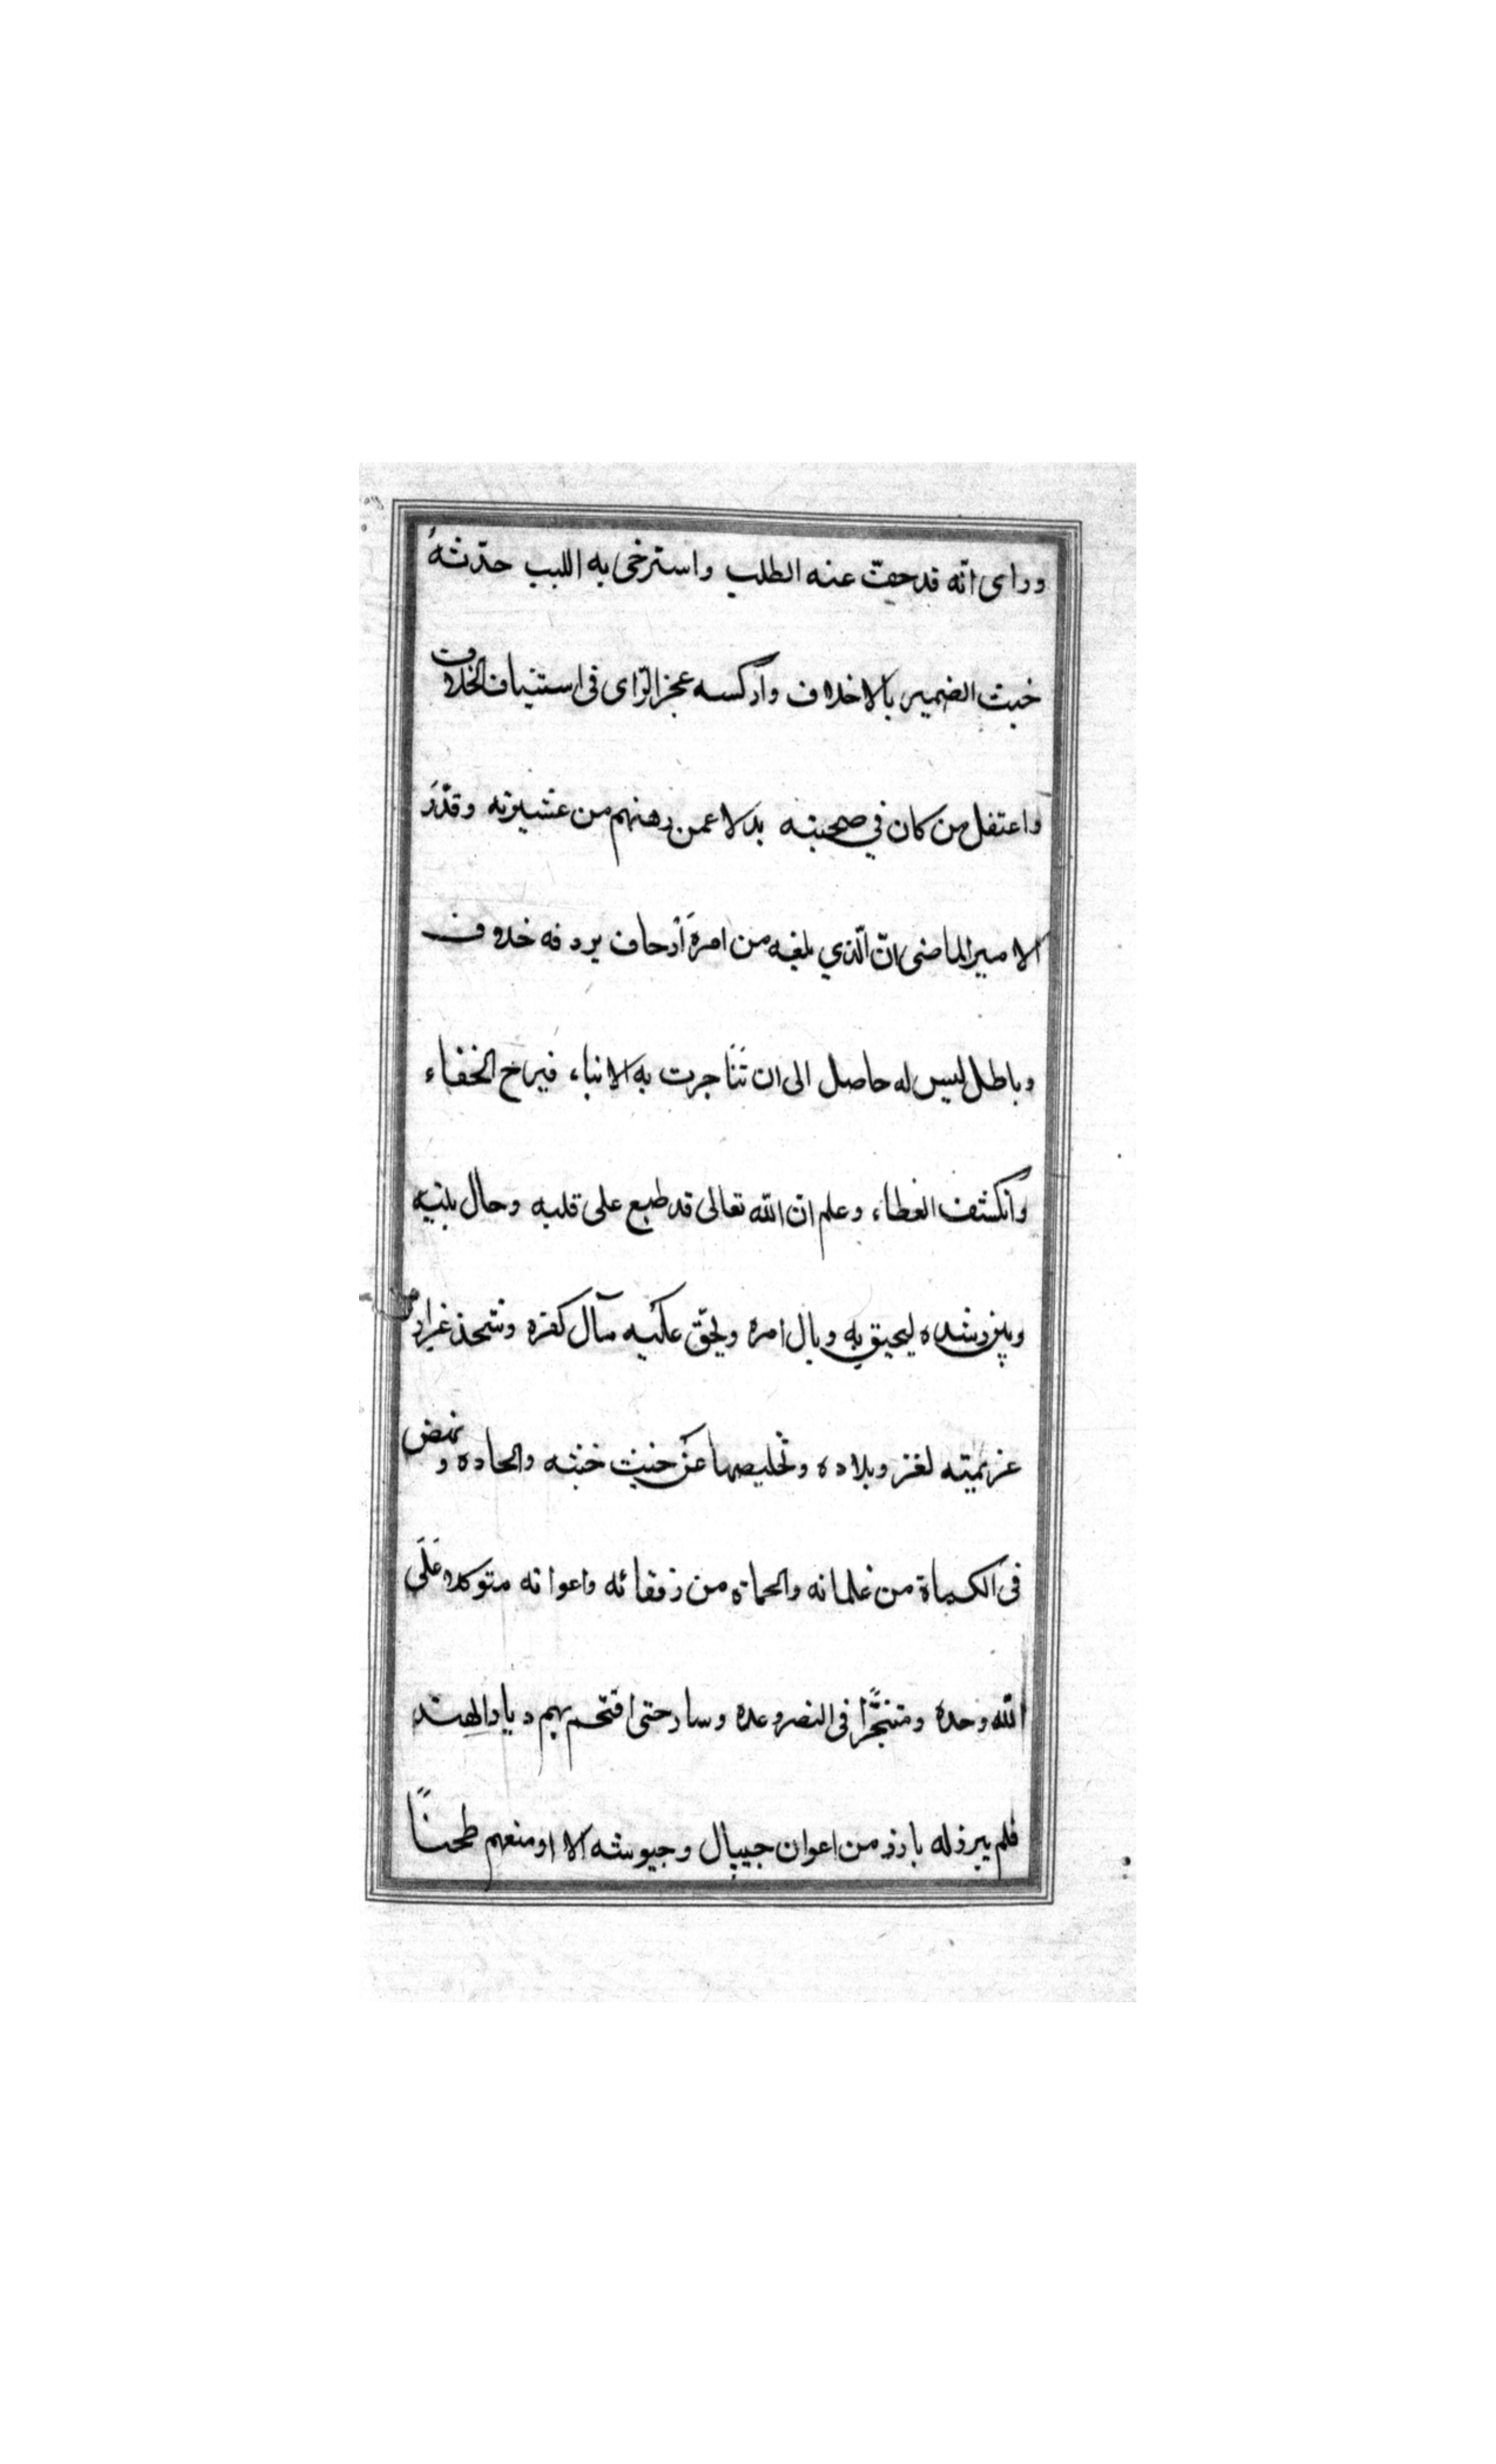 وراى انّه قد حفت عنه الطلب واسترخى به اللبب حدّثهُ
خبث الضمير بالاخلاف واركسه عجز الرّاى فى استنباف الخلاف
واعتقل من كان في صحبته بدلا عمن رهنهم من عشيرته وقدّرَ
الامير الماضى انّ الّذي بلغه من امره اَرحاف يردفه خلاف
وباطل ليس له حاصل الى ان تَنَاجرت به الانباء فبرح الخفاء
وانكشف الغطاء وعلم ان الله تعالى قد طبع على قلبه وحال بينه
وبين رشده ليحيق به وبال امره ويحقّ عليه مآل كفره وشحذ غرار
عزيمته لغزو بلاده وتخليصها عن خبث خبثه والحاده ونهض
فى الكماة من غلمانه والحماة من رفقائه واعوانه متوكلا عَلَى
الله وحده ومتنجّزًا فى النصر وعده وسار حتى اقتحم بهم ديار الهند
فلم يبرز له بارز من اعوان جيپال وجيوشه الا اومنعهم طحنًا